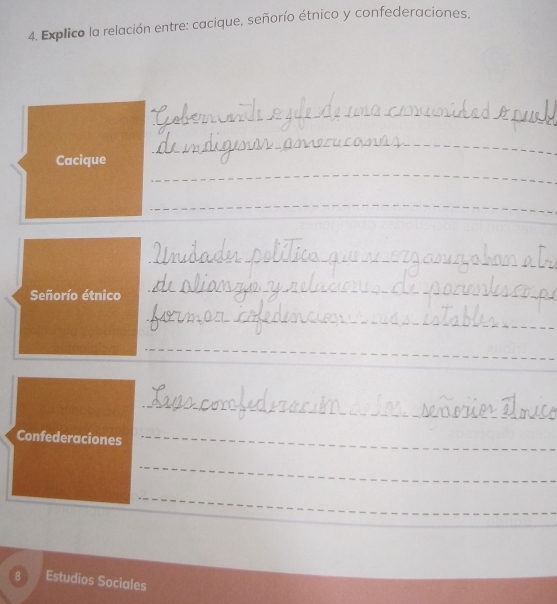 4. Explico la relación entre: cacique, señorío étnico y confederaciones.
Cacique
Gobernante o jefe de una comunidad o puebl
de indigenas americanas
Señorío étnico
Unidades política que se organizaban a tra
de alianza y relaciones de parentesco p
formar cofedenciones más estables
Confederaciones
confederación señorios étnico
8 Estudios Sociales